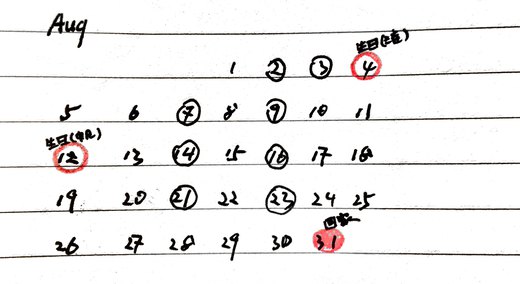 Aug
1 2 3 4
5 6 7 8 9 10 11
生日
12 13 14 15 16 17 18
19 20 21 22 23 24 25
26 27 28 29 30 31